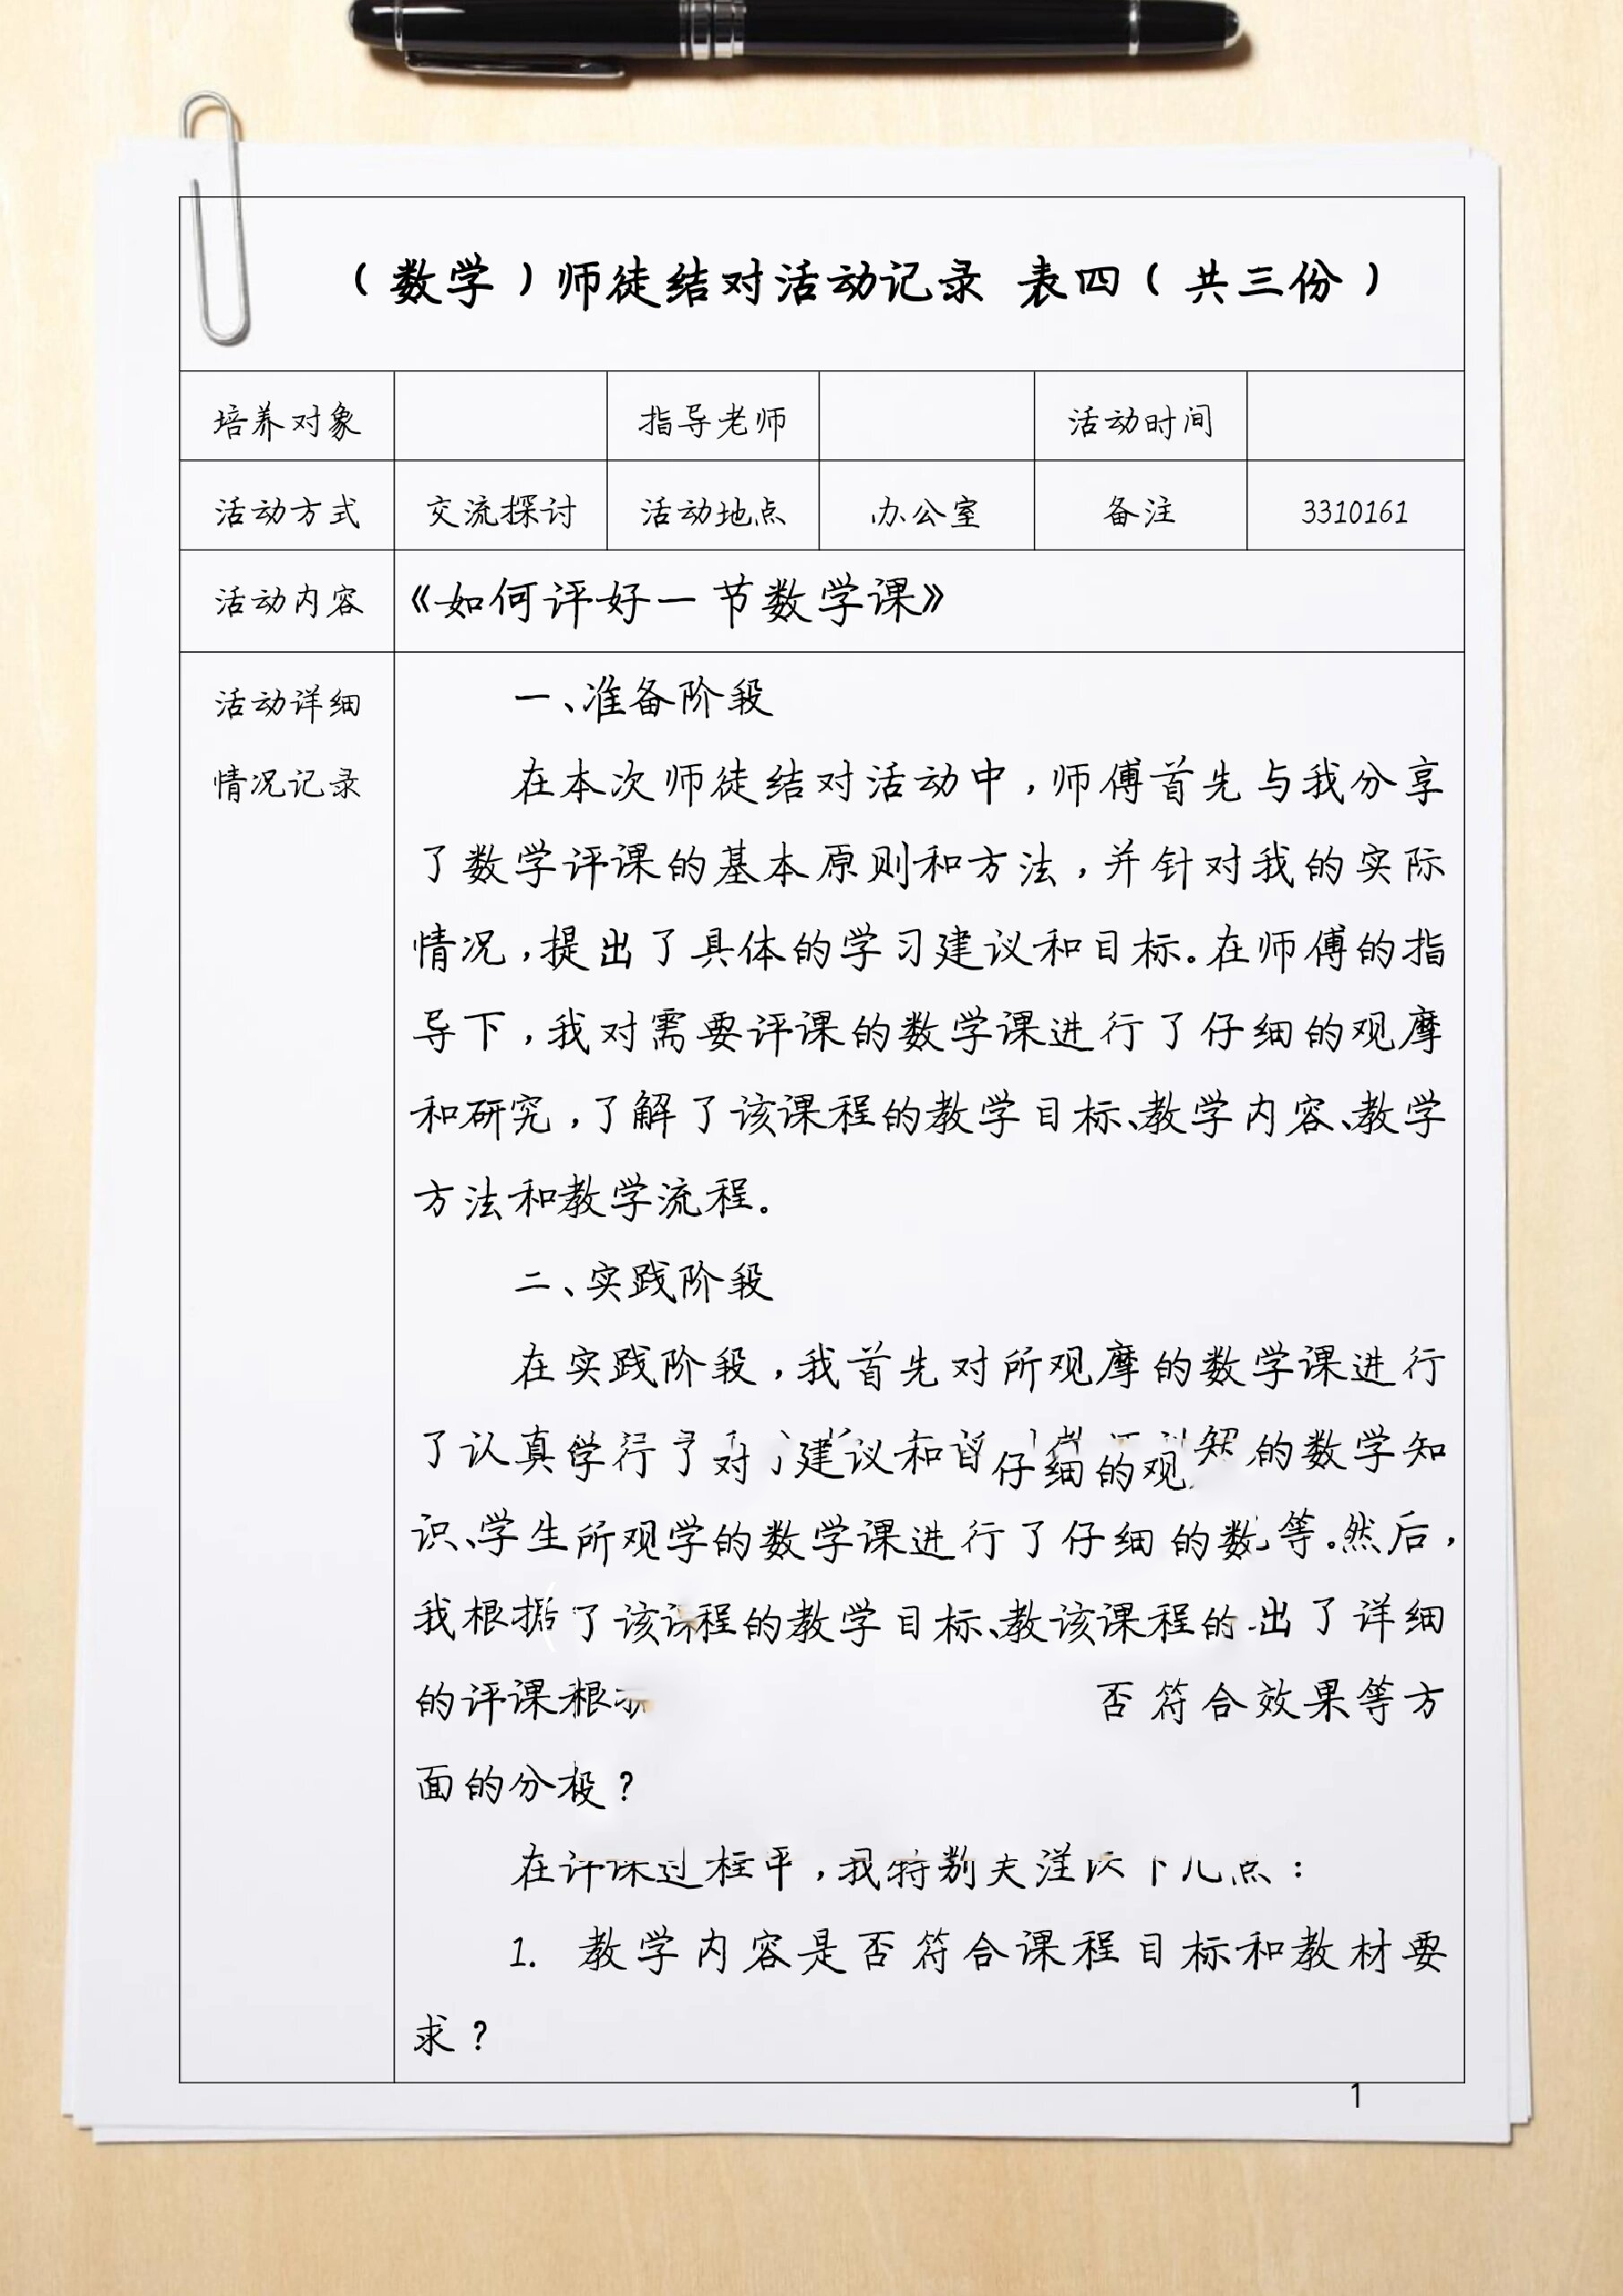 （数学）师徒结对活动记录 表四（共三份）
培养对象 指导老师 活动时间
活动方式 交流探讨 活动地点 办公室 备注 3310161
活动内容 《如何评好一节数学课》
活动详细
情况记录
一、准备阶段
在本次师徒结对活动中，师傅首先与我分享
了数学评课的基本原则和方法，并针对我的实际
情况，提出了具体的学习建议和目标。在师傅的指
导下，我对需要评课的数学课进行了仔细的观摩
和研究，了解了该课程的教学目标、教学内容、教学
方法和教学流程。
二、实践阶段
在实践阶段，我首先对所观摩的数学课进行
了认真学行 对 建议和 仔细的观 的数学知
识、学生所观学的数学课进行了仔细的数 等。然后，
我根据了该课程的教学目标、教该课程的 出了详细
的评课根 否符合效果等方
面的分 ？
在评课过程 ，我特别关注以下几点：
1. 教学内容是否符合课程目标和教材要
求？
1